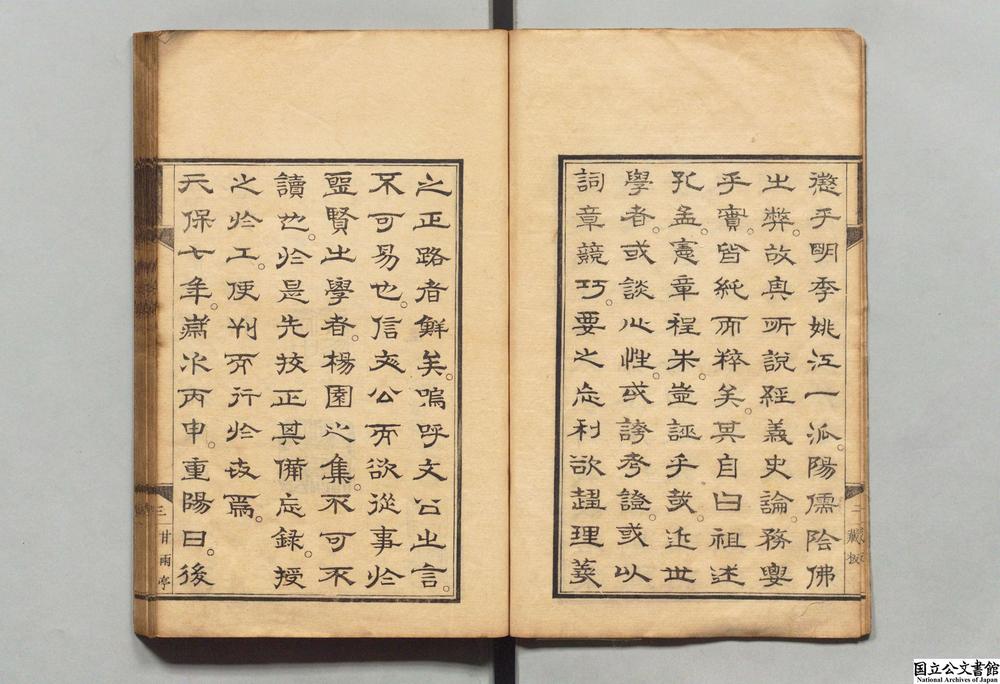 懲乎明季姚江一派。陽儒陰佛
之弊。故其所說經義史論。務要
乎實。皆純而粹矣。其自曰祖述
孔孟。憲章程朱。豈誣乎哉。近世
學者。或談心性。或誇考證。或以
詞章競巧。要之忘利欲趨理義
二 藏板
之正路者鮮矣。嗚呼文公之言。
不可易也。信夫公而欲從事於
聖賢之學者。楊園之集。不可不
讀也。於是先校正其備忘錄。授
之於工。使刊而行於世焉。
天保七年。歲次丙申。重陽日。後
三 甘雨亭
国立公文書館
National Archives of Japan